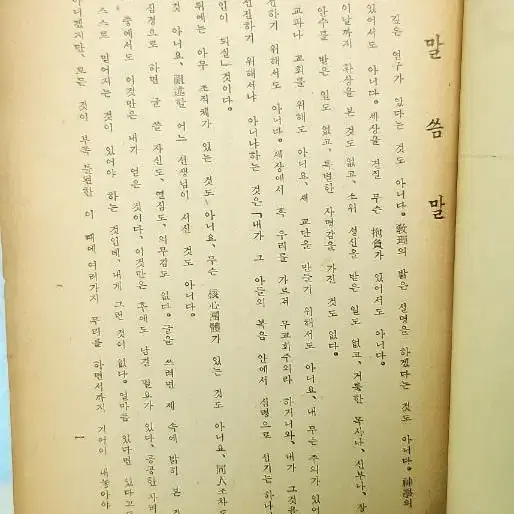 말씀말
깊은 연구가 있다는 것도 아니다. 敎理의 밝은 설명을 하겠다는 것도 아니다. 神學의
있어서도 아니다. 세상을 건질 무슨 抱負가 있어서도 아니다.
이날까지 환상을 본 것도 없고, 소위 성신을 받은 일도 없고, 거룩한 목사나, 신부나, 장
안수를 받은 일도 없고, 특별한 사명감을 가진 것도 없다.
교파나 교회를 위해도 아니요, 새 교단을 만들기 위해서도 아니요, 내 무슨 주의가 있어
전하기 위해서도 아니다. 세상에서 혹 우리를 가르쳐 무교회주의라 하거니와, 내가 그것을
선전하기 위해서냐 아니냐하는 것은 「내가 그 아들의 복음 안에서 심령으로 섬기는 하나
인이 되실」것이다.
뒤에는 아무 조직체가 있는 것도 아니요, 무슨 核心團體가 있는 것도 아니요, 同人조차
것도 아니요, 한 어느 선생님이 서신 것도 아니다.
심경으로 하면 글 쓸 자신도, 열심도, 의무감도 없다. 글을 쓰려면 제 속에 밝히 본 것
중에서도 이것만은 내가 얻은 것이다, 이것만은 후에도 남길 필요가 있다, 공공한 자리
스스로 믿어지는 것이 있어야 하는 것인데, 내게 그런 것이 없다. 얼마쯤 있다면 있다고
아니겠지만, 모든 것이 부족 불완전한 이 때에 여러가지 무리를 하면서까지 기어이 내놓아야